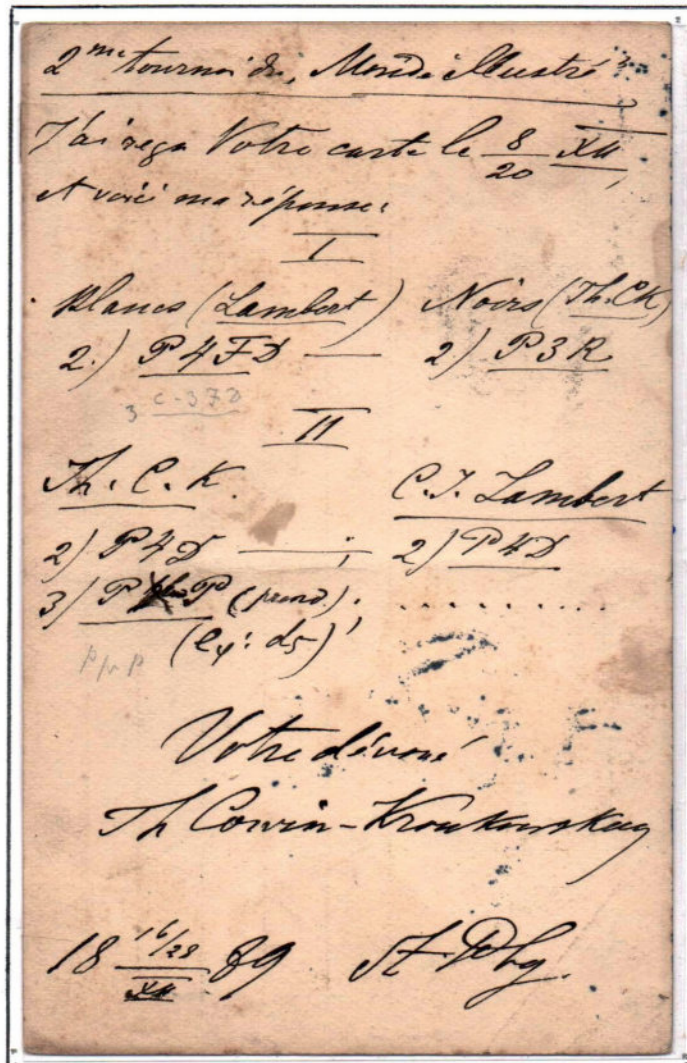 2me tournoi du „Monde illustré"
J'ai reçu Votre carte le 8/20 XII,
et voici ma réponse:
I
Blancs (Lambert) Noirs (Th. CK)
2.) P4FD — 2) P3R
3 C-3FD
II
Th. C. K. C. J. Lambert
2) P4D —; 2) P4D
3) P P (prend.). . . . . . . . .
(e4: d5)
P pr P
Votre dévoué
Th Corvin-Kroukowskoy
18 16/28 XII 89 St. Pbg.